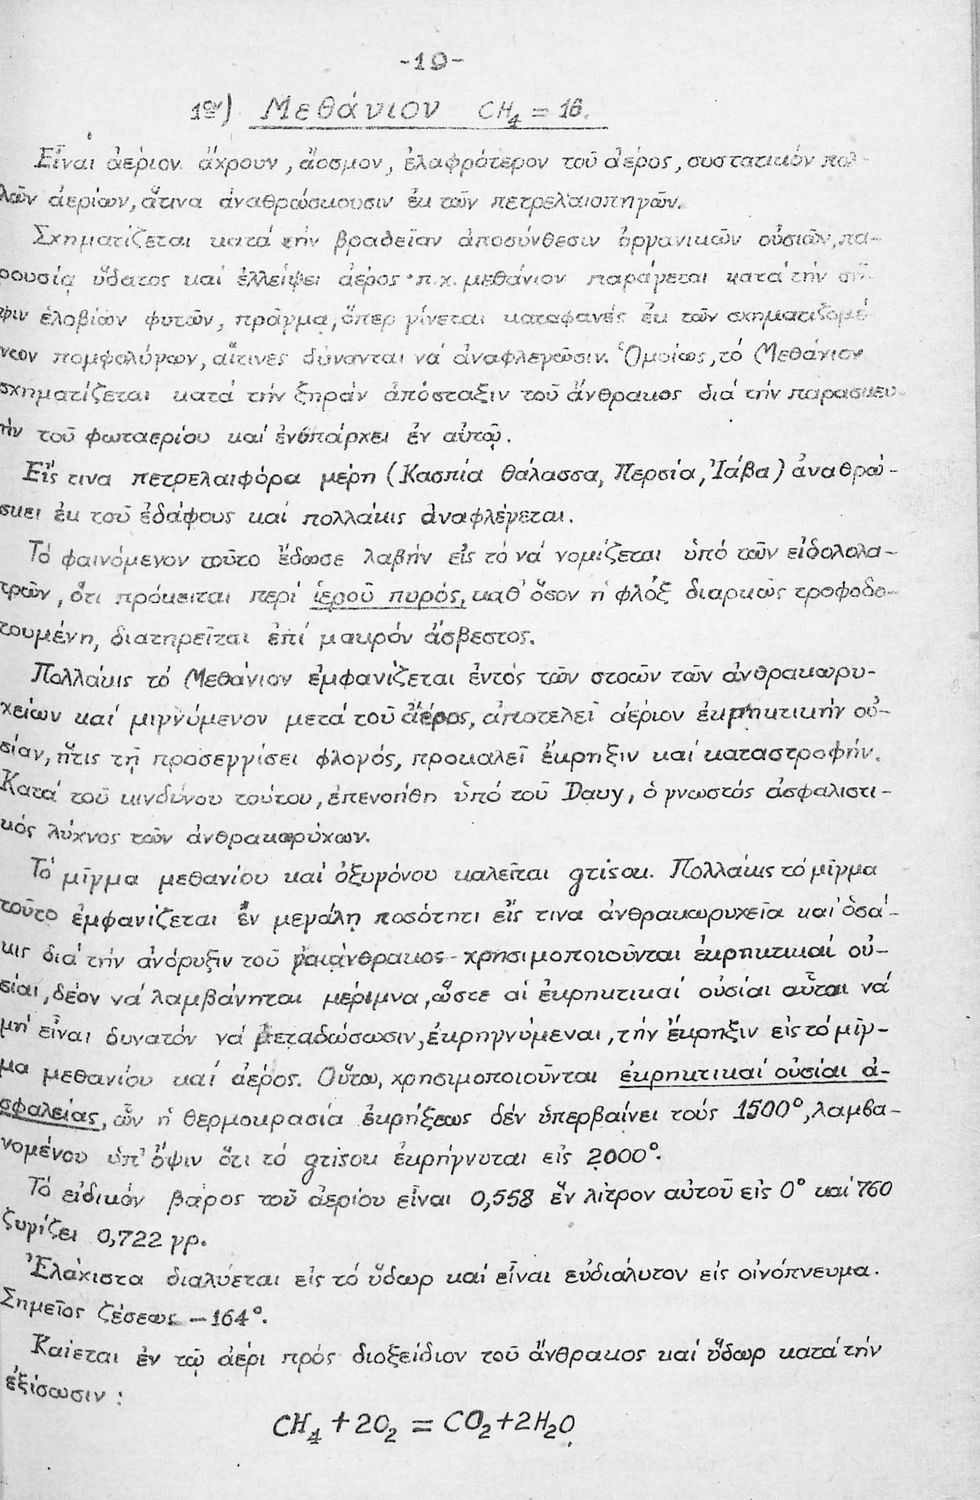 -19-
1ον) Μεθάνιον CH4 = 16.
Εἶναι ἀέριον ἄχρουν, ἄοσμον, ἐλαφρότερον τοῦ ἀέρος, συστατικόν πολ-
λῶν ἀερίων, ἅτινα ἀναθρώσκουσιν ἐκ τῶν πετρελαιοπηγῶν.
Σχηματίζεται κατά τήν βραδεῖαν ἀποσύνθεσιν ὀργανικῶν οὐσιῶν, πα-
ρουσίᾳ ὕδατος καί ἐλλείψει ἀέρος· π.χ. μεθάνιον παράγεται κατά τήν σῆ-
ψιν ἑλοβίων φυτῶν, πρᾶγμα, ὅπερ γίνεται καταφανές ἐκ τῶν σχηματιζομέ-
νων πομφολύγων, αἵτινες δύνανται νά ἀναφλεγῶσιν. Ὁμοίως, τό Μεθάνιον
σχηματίζεται κατά τήν ξηράν ἀπόσταξιν τοῦ ἄνθρακος διά τήν παρασκευ-
ήν τοῦ φωταερίου καί ἐνυπάρχει ἐν αὐτῷ.
Εἴς τινα πετρελαιφόρα μέρη (Κασπία θάλασσα, Περσία, Ἰάβα) ἀναθρώ-
σκει ἐκ τοῦ ἐδάφους καί πολλάκις ἀναφλέγεται.
Τό φαινόμενον τοῦτο ἔδωσε λαβήν εἰς τό νά νομίζεται ὑπό τῶν εἰδολολα-
τρῶν, ὅτι πρόκειται περί ἱεροῦ πυρός, καθ' ὅσον ἡ φλόξ διαρκῶς τροφοδο-
τουμένη, διατηρεῖται ἐπί μακρόν ἄσβεστος.
Πολλάκις τό Μεθάνιον ἐμφανίζεται ἐντός τῶν στοῶν τῶν ἀνθρακωρυ-
χείων καί μιγνύμενον μετά τοῦ ἀέρος, ἀποτελεῖ ἀέριον ἐκρηκτικήν οὐ-
σίαν, ἥτις τῇ προσεγγίσει φλογός, προκαλεῖ ἔκρηξιν καί καταστροφήν.
Κατά τοῦ κινδύνου τούτου, ἐπενοήθη ὑπό τοῦ Davy, ὁ γνωστός ἀσφαλιστι-
κός λύχνος τῶν ἀνθρακωρύχων.
Τό μῖγμα μεθανίου καί ὀξυγόνου καλεῖται grisou. Πολλάκις τό μῖγμα
τοῦτο ἐμφανίζεται ἐν μεγάλῃ ποσότητι εἴς τινα ἀνθρακωρυχεῖα καί ὁσά-
κις διά τήν ἀνόρυξιν τοῦ γαιάνθρακος χρησιμοποιοῦνται ἐκρηκτικαί οὐ-
σίαι, δέον νά λαμβάνηται μέριμνα, ὥστε αἱ ἐκρηκτικαί οὐσίαι αὗται νά
μή εἶναι δυνατόν νά μεταδώσωσιν, ἐκρηγνύμεναι, τήν ἔκρηξιν εἰς τό μῖγ-
μα μεθανίου καί ἀέρος. Οὕτω, χρησιμοποιοῦνται ἐκρηκτικαί οὐσίαι ἀ-
σφαλείας, ὧν ἡ θερμοκρασία ἐκρήξεως δέν ὑπερβαίνει τούς 1500°, λαμβα-
νομένου ὑπ' ὄψιν ὅτι τό grisou ἐκρήγνυται εἰς 2000°.
Τό εἰδικόν βάρος τοῦ ἀερίου εἶναι 0,558 ἕν λίτρον αὐτοῦ εἰς 0° καί 760
ζυγίζει 0,722 γρ.
Ἐλάχιστα διαλύεται εἰς τό ὕδωρ καί εἶναι εὐδιάλυτον εἰς οἰνόπνευμα.
Σημεῖος ζέσεως -164°.
Καίεται ἐν τῷ ἀέρι πρός διοξείδιον τοῦ ἄνθρακος καί ὕδωρ κατά τήν
ἐξίσωσιν :
CH4 + 2O2 = CO2 + 2H2O